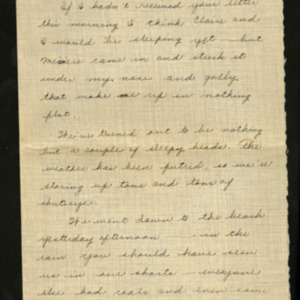 If I hadn't received your letter
this morning I think Claire and
I would be sleeping yet - but
came in and stuck it
under my nose and golly
that woke me up in nothing
flat.
We've turned out to be nothing
but a couple of sleepy heads. The
weather has been putrid, so we're
storing up tons and tons of
shuteye.
We went down to the beach
yesterday afternoon in the
rain you should have seen
us in our shorts - everyone
else had coats and even some